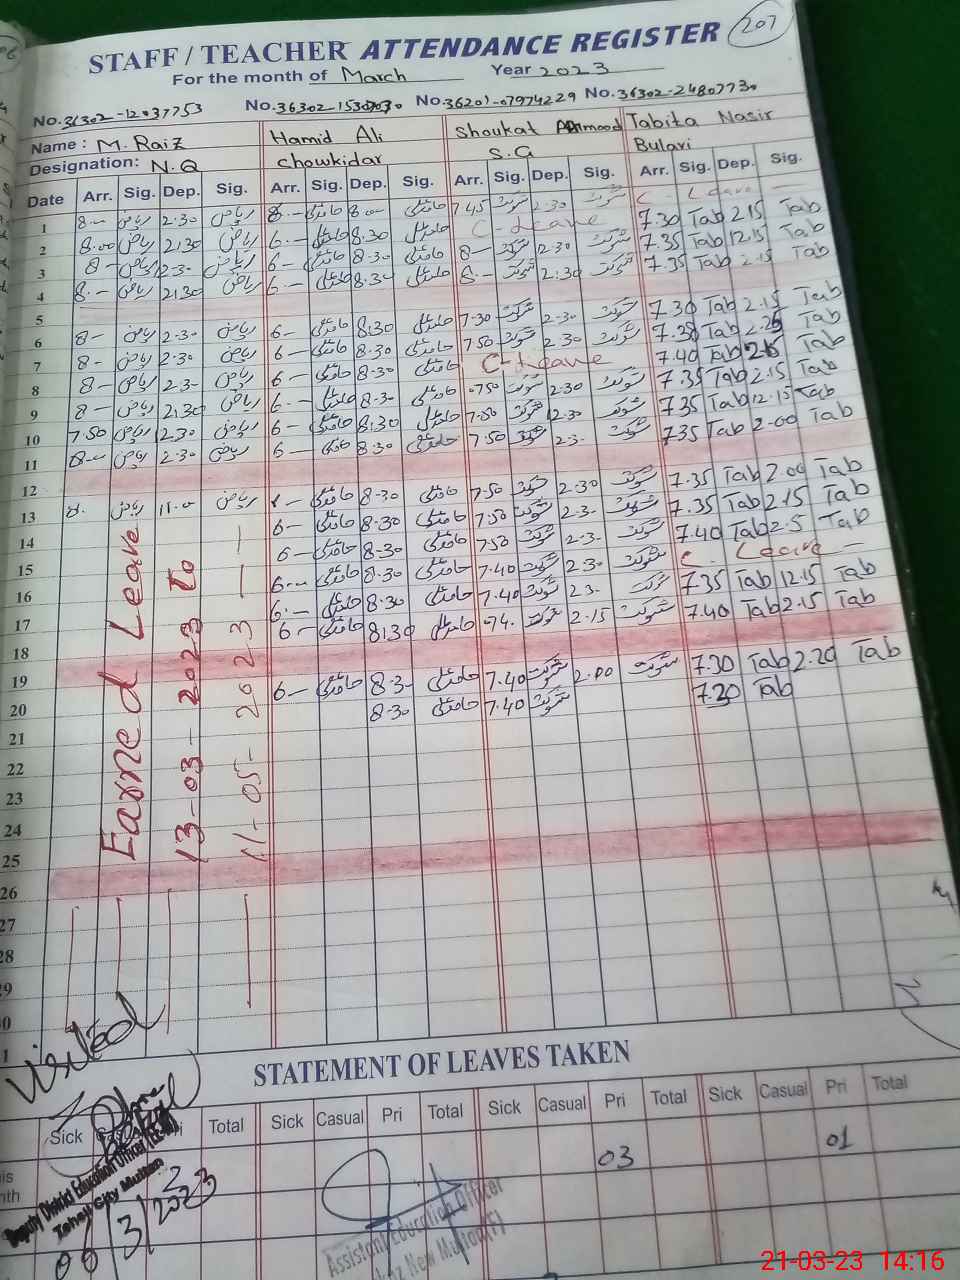 207
STAFF / TEACHER ATTENDANCE REGISTER
For the month of March Year 2023
No.36302-12037753 No. No.36201-07974229 No.36302-2480773.
Name : M. Raiz Hamid Ali Shoukat Tabita Nasir
Designation: N.Q Chowkidar S.G Bulavi
Date Arr. Sig. Dep. Sig. Arr. Sig. Dep. Sig. Arr. Sig. Dep. Sig. Arr. Sig. Dep. Sig.
1 8.- ریاض 2.30 ریاض 8.- حامدعلی 8.- حامدعلی 7.45 شوکت 2.30 شوکت C. Leave —
2 8.00 ریاض 2.30 ریاض 6.- حامدعلی 8.30 حامدعلی C-Leave 7.30 Tab 2.15 Tab
3 8- ریاض 2.3- ریاض 6- حامدعلی 8.30 حامدعلی 8- شوکت 2.30 شوکت 7.35 Tab 12.15 Tab
4 8.- ریاض 2.30 ریاض 6.- حامدعلی 8.30 حامدعلی 8.- شوکت 2.30 شوکت 7.35 Tab 2.15 Tab
5
6 8- ریاض 2.30 ریاض 6- حامدعلی 8.30 حامدعلی 7.30 شوکت 2.30 شوکت 7.30 Tab 2.15 Tab
7 8- ریاض 2.30 ریاض 6- حامدعلی 8.30 حامدعلی 7.50 شوکت 2.30 شوکت Tab Tab
8 8- ریاض 2.3- ریاض 6- حامدعلی 8.30 حامدعلی C-Leave 7.40 Tab Tab
9 8- ریاض 2.30 ریاض 6.- حامدعلی 8.30 حامدعلی 7.50 شوکت 2.30 شوکت 7.35 Tab 2.15 Tab
10 7.50 ریاض 2.30 ریاض 6- حامدعلی 8.30 حامدعلی 7.50 شوکت 2.30 شوکت 7.35 Tab 12.15 Tab
11 8- ریاض 2.30 ریاض 6- حامدعلی 8.30 حامدعلی 7.50 شوکت 2.3- شوکت 7.35 Tab 2.00 Tab
12
13 8. ریاض ریاض حامدعلی 8.30 حامدعلی 7.50 شوکت 2.30 شوکت 7.35 Tab 2.00 Tab
14 6- حامدعلی 8.30 حامدعلی 7.50 شوکت 2.3- شوکت 7.35 Tab 2.15 Tab
15 6- حامدعلی 8.30 حامدعلی 7.50 شوکت 2.3- شوکت 7.40 Tab 2.5 Tab
16 6.- حامدعلی 8.30 حامدعلی 7.40 شوکت 2.30 شوکت C. Leave —
17 6.- حامدعلی 8.30 حامدعلی 7.40 شوکت 2.3- شوکت 7.35 Tab 12.15 Tab
18 6- حامدعلی 8.30 حامدعلی شوکت 2.15 شوکت 7.40 Tab 2.15 Tab
19
20 6- حامدعلی 8.3- حامدعلی 7.40 شوکت 2.00 شوکت 7.30 Tab 2.20 Tab
21 8.30 حامدعلی 7.40 شوکت 7.20 Tab
22
23
24
25
26
27
28
29
Earned Leave
13-03-2023 to
11-05-2023
Visited
STATEMENT OF LEAVES TAKEN
Sick Total Sick Casual Pri Total Sick Casual Pri Total Sick Casual Pri Total
03 01
Deputy District Education Officer
06/3/2023
Assistant Education Officer
New Multan (F)
21-03-23 14:16